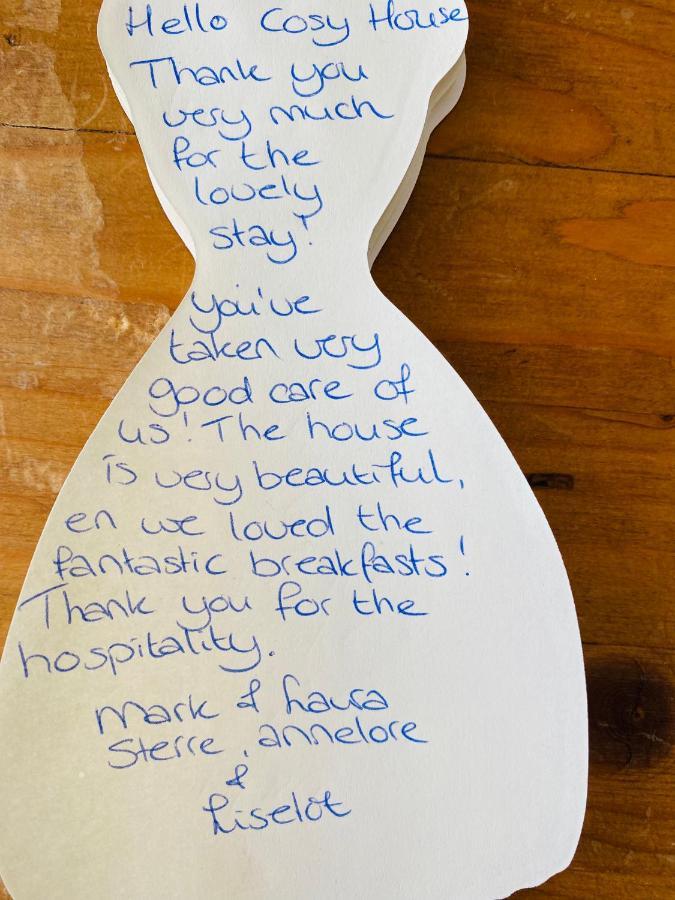 Hello Cosy House
Thank you
very much
for the
lovely
stay!
you've
taken very
good care of
us! The house
is very beautiful,
en we loved the
fantastic breakfasts!
Thank you for the
hospitality.
Mark & Laura
Sterre, annelore
&
Liselot